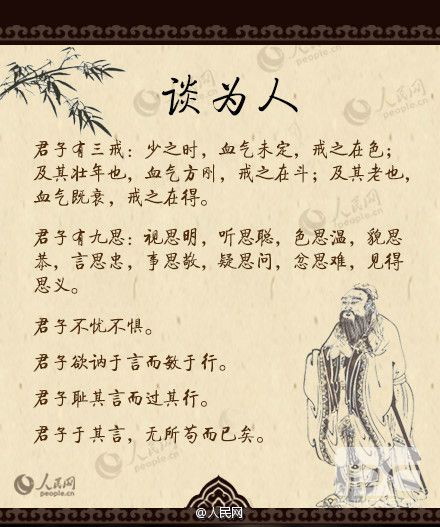 人民网
people.cn
谈为人
君子有三戒：少之时，血气未定，戒之在色；
及其壮年也，血气方刚，戒之在斗；及其老也，
血气既衰，戒之在得。
君子有九思：视思明，听思聪，色思温，貌思
恭，言思忠，事思敬，疑思问，忿思难，见得
思义。
君子不忧不惧。
君子欲讷于言而敏于行。
君子耻其言而过其行。
君子于其言，无所苟而已矣。
人民网
people.cn
@人民网